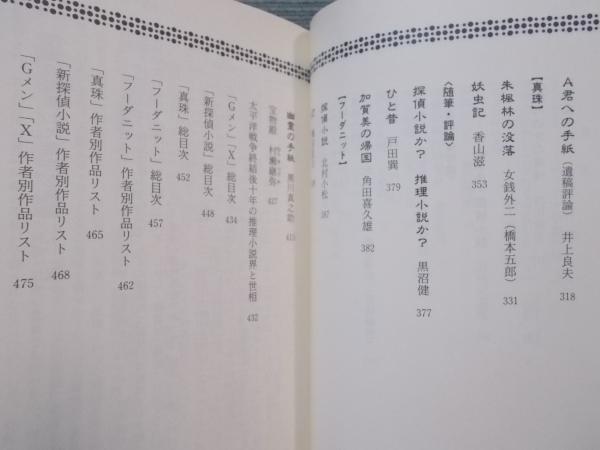 A君への手紙(遺稿評論) 井上良夫 318
【真珠】
朱楓林の没落 女銭外二(橋本五郎) 331
妖虫記 香山滋 353
〈随筆・評論〉
探偵小説か? 推理小説か? 黒沼健 377
ひと昔 戸田巽 379
加賀美の帰国 角田喜久雄 382
【フーダニット】
探偵小説 北村小松 387
幽霊の手紙 黒川真之助 415
宝物殿 村瀬継弥 427
太平洋戦争終結後十年の推理小説界と世相 432
「Gメン」「X」総目次 434
「新探偵小説」総目次 448
「真珠」総目次 452
「フーダニット」総目次 457
「フーダニット」作者別作品リスト 462
「真珠」作者別作品リスト 465
「新探偵小説」作者別作品リスト 468
「Gメン」「X」作者別作品リスト 475